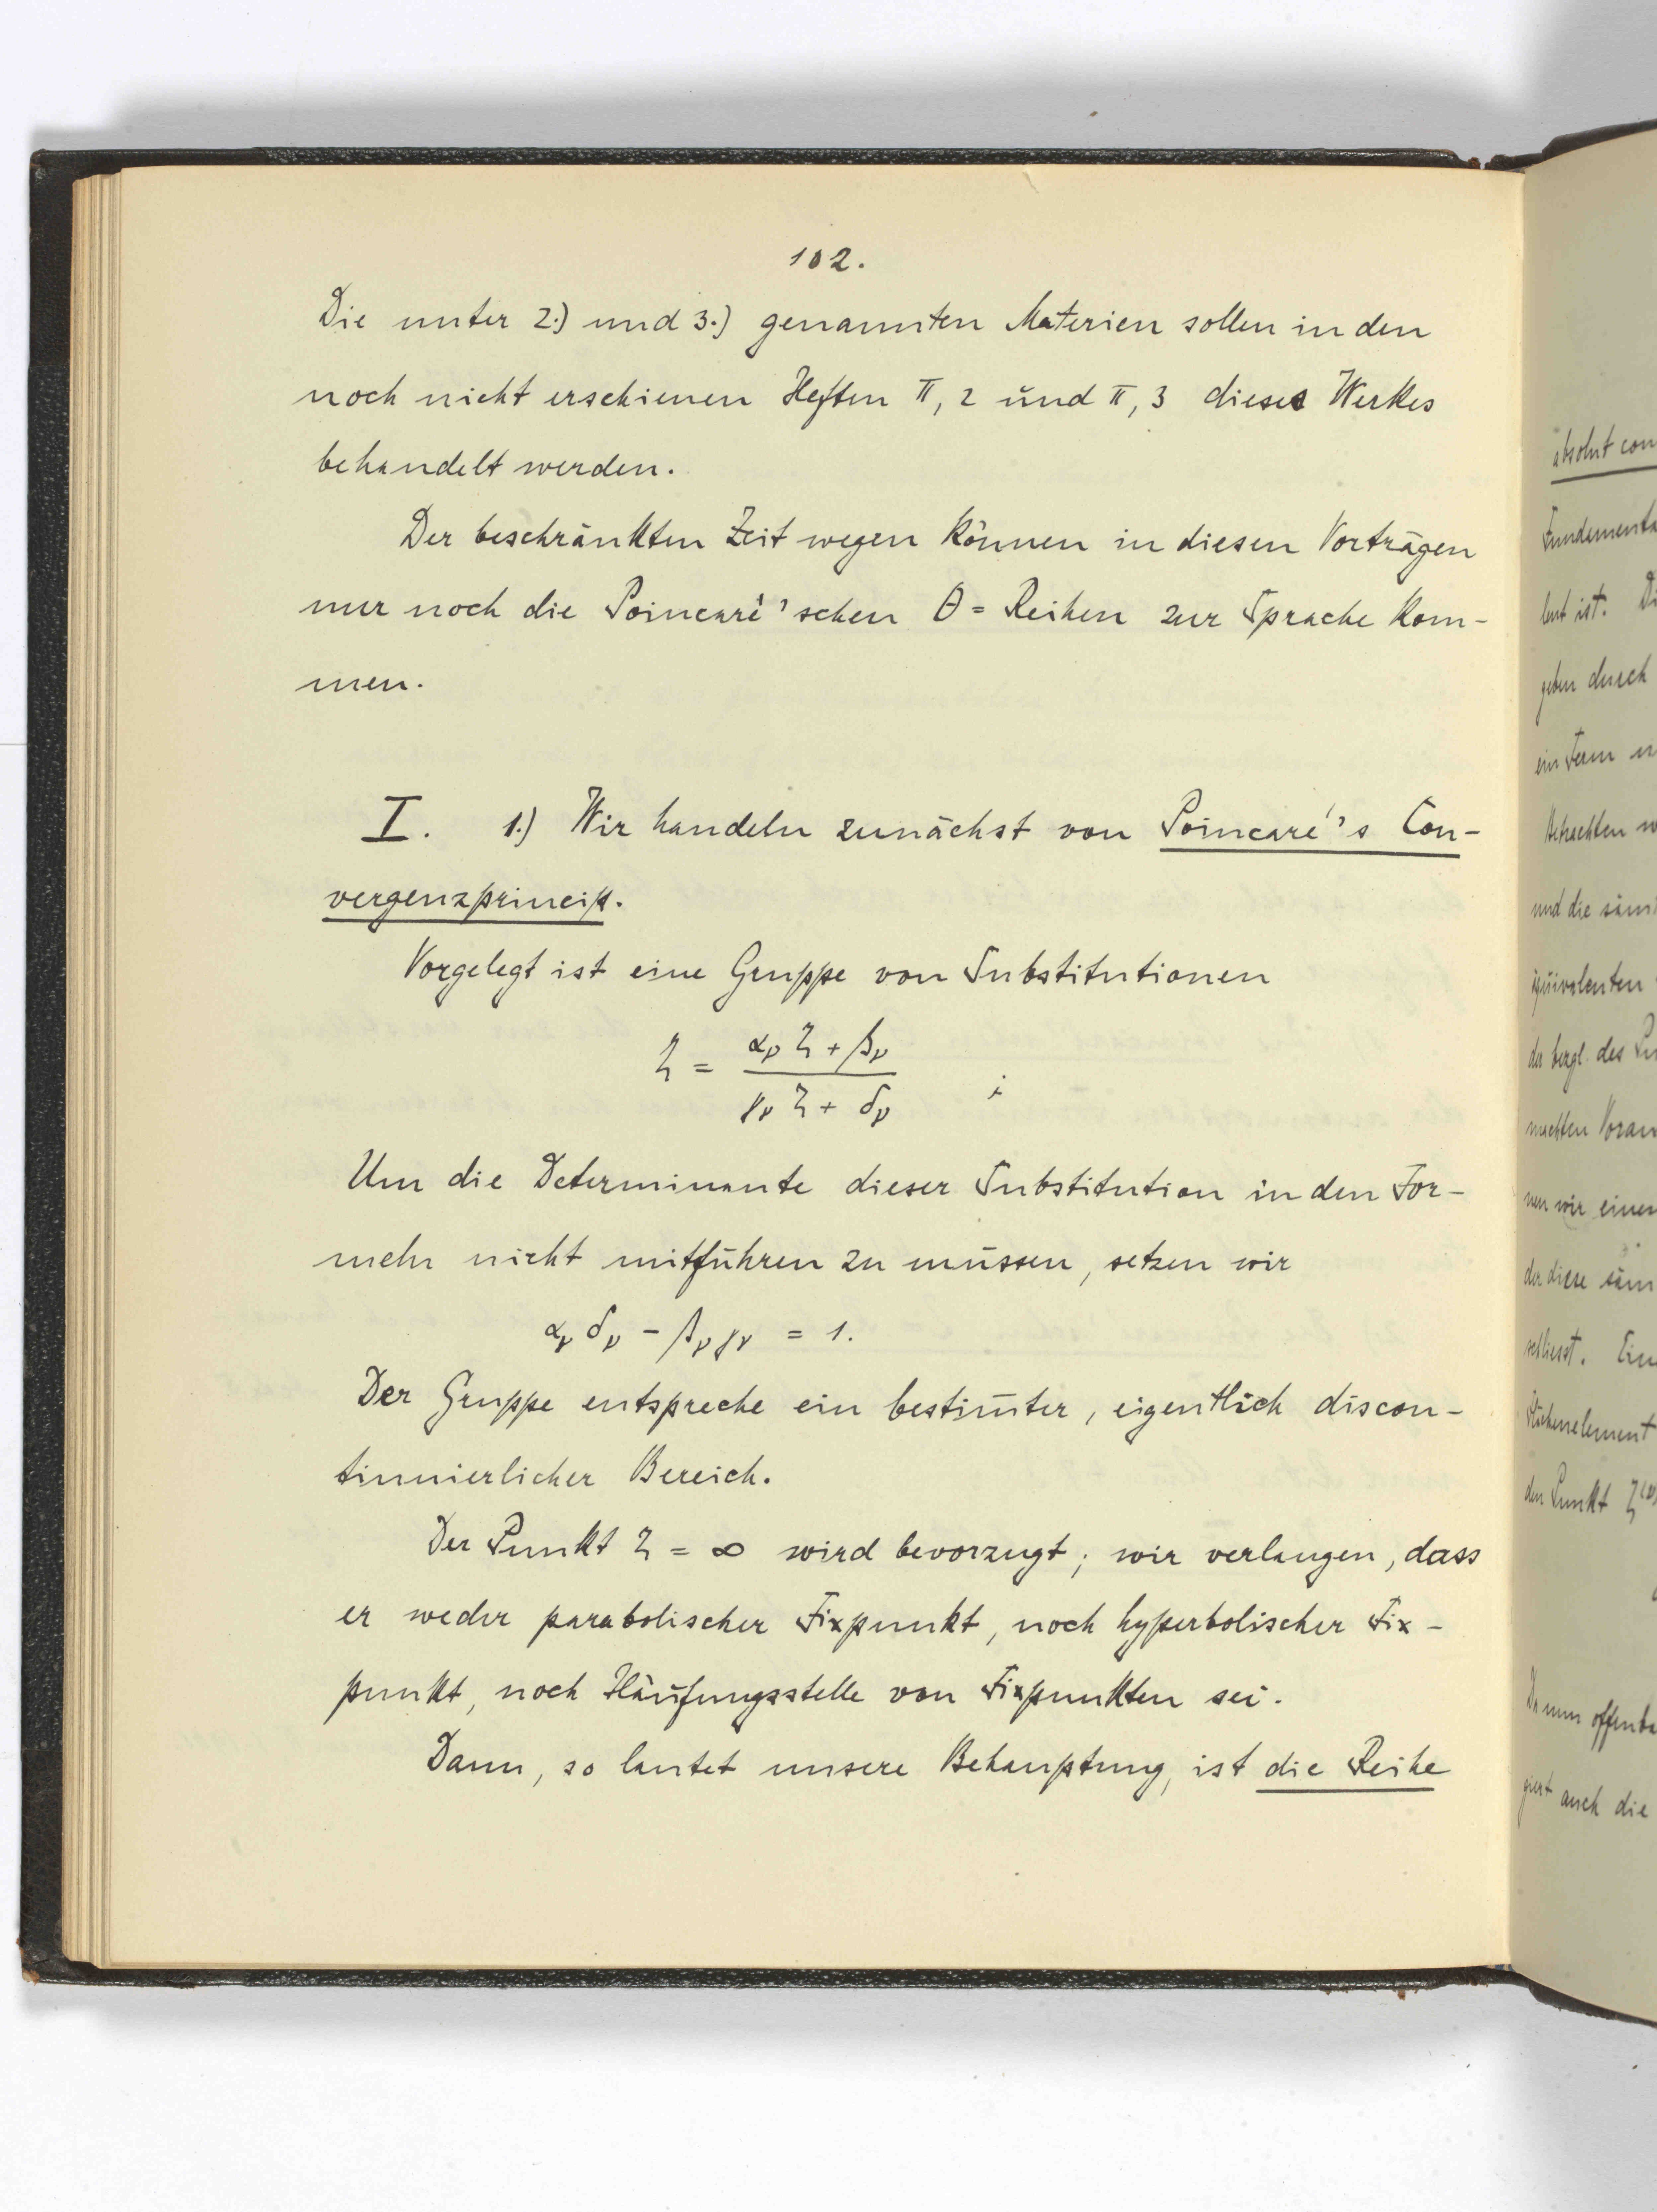 102.
Die unter 2.) und 3.) genannten Materien sollen in den
noch nicht erschienen Heften II, 2 und II, 3 dieses Werkes
behandelt werden.
Der beschränkten Zeit wegen können in diesen Vorträgen
nur noch die Poincaré'schen θ = Reihen zur Sprache kom-
men.
I. 1.) Wir handeln zunächst von Poincaré's Con-
vergenzprincip.
Vorgelegt ist eine Gruppe von Substitutionen
ζ = (α_ν ζ + β_ν) / (γ_ν ζ + δ_ν) ;
Um die Determinante dieser Substitution in den For-
meln nicht mitführen zu müssen, setzen wir
α_ν δ_ν - β_ν γ_ν = 1.
Der Gruppe entspreche ein bestim̅ter, eigentlich discon-
tinuierlicher Bereich.
Der Punkt ζ = ∞ wird bevorzugt; wir verlangen, dass
er weder parabolischer Fixpunkt, noch hyperbolischer Fix-
punkt, noch Häufungsstelle von Fixpunkten sei.
Dann, so lautet unsere Behauptung, ist die Reihe
absolut con
Fundamenta
lent ist. Di
geben durch
ein Term
Betrachten w
und die säm
äquivalenten
der bergl. des Pu
machten Voran
nen wir einen
der diese säm
schliesst. Ein
Flächenelement
den Punkt ζ
Da nun offenba
giert auch die